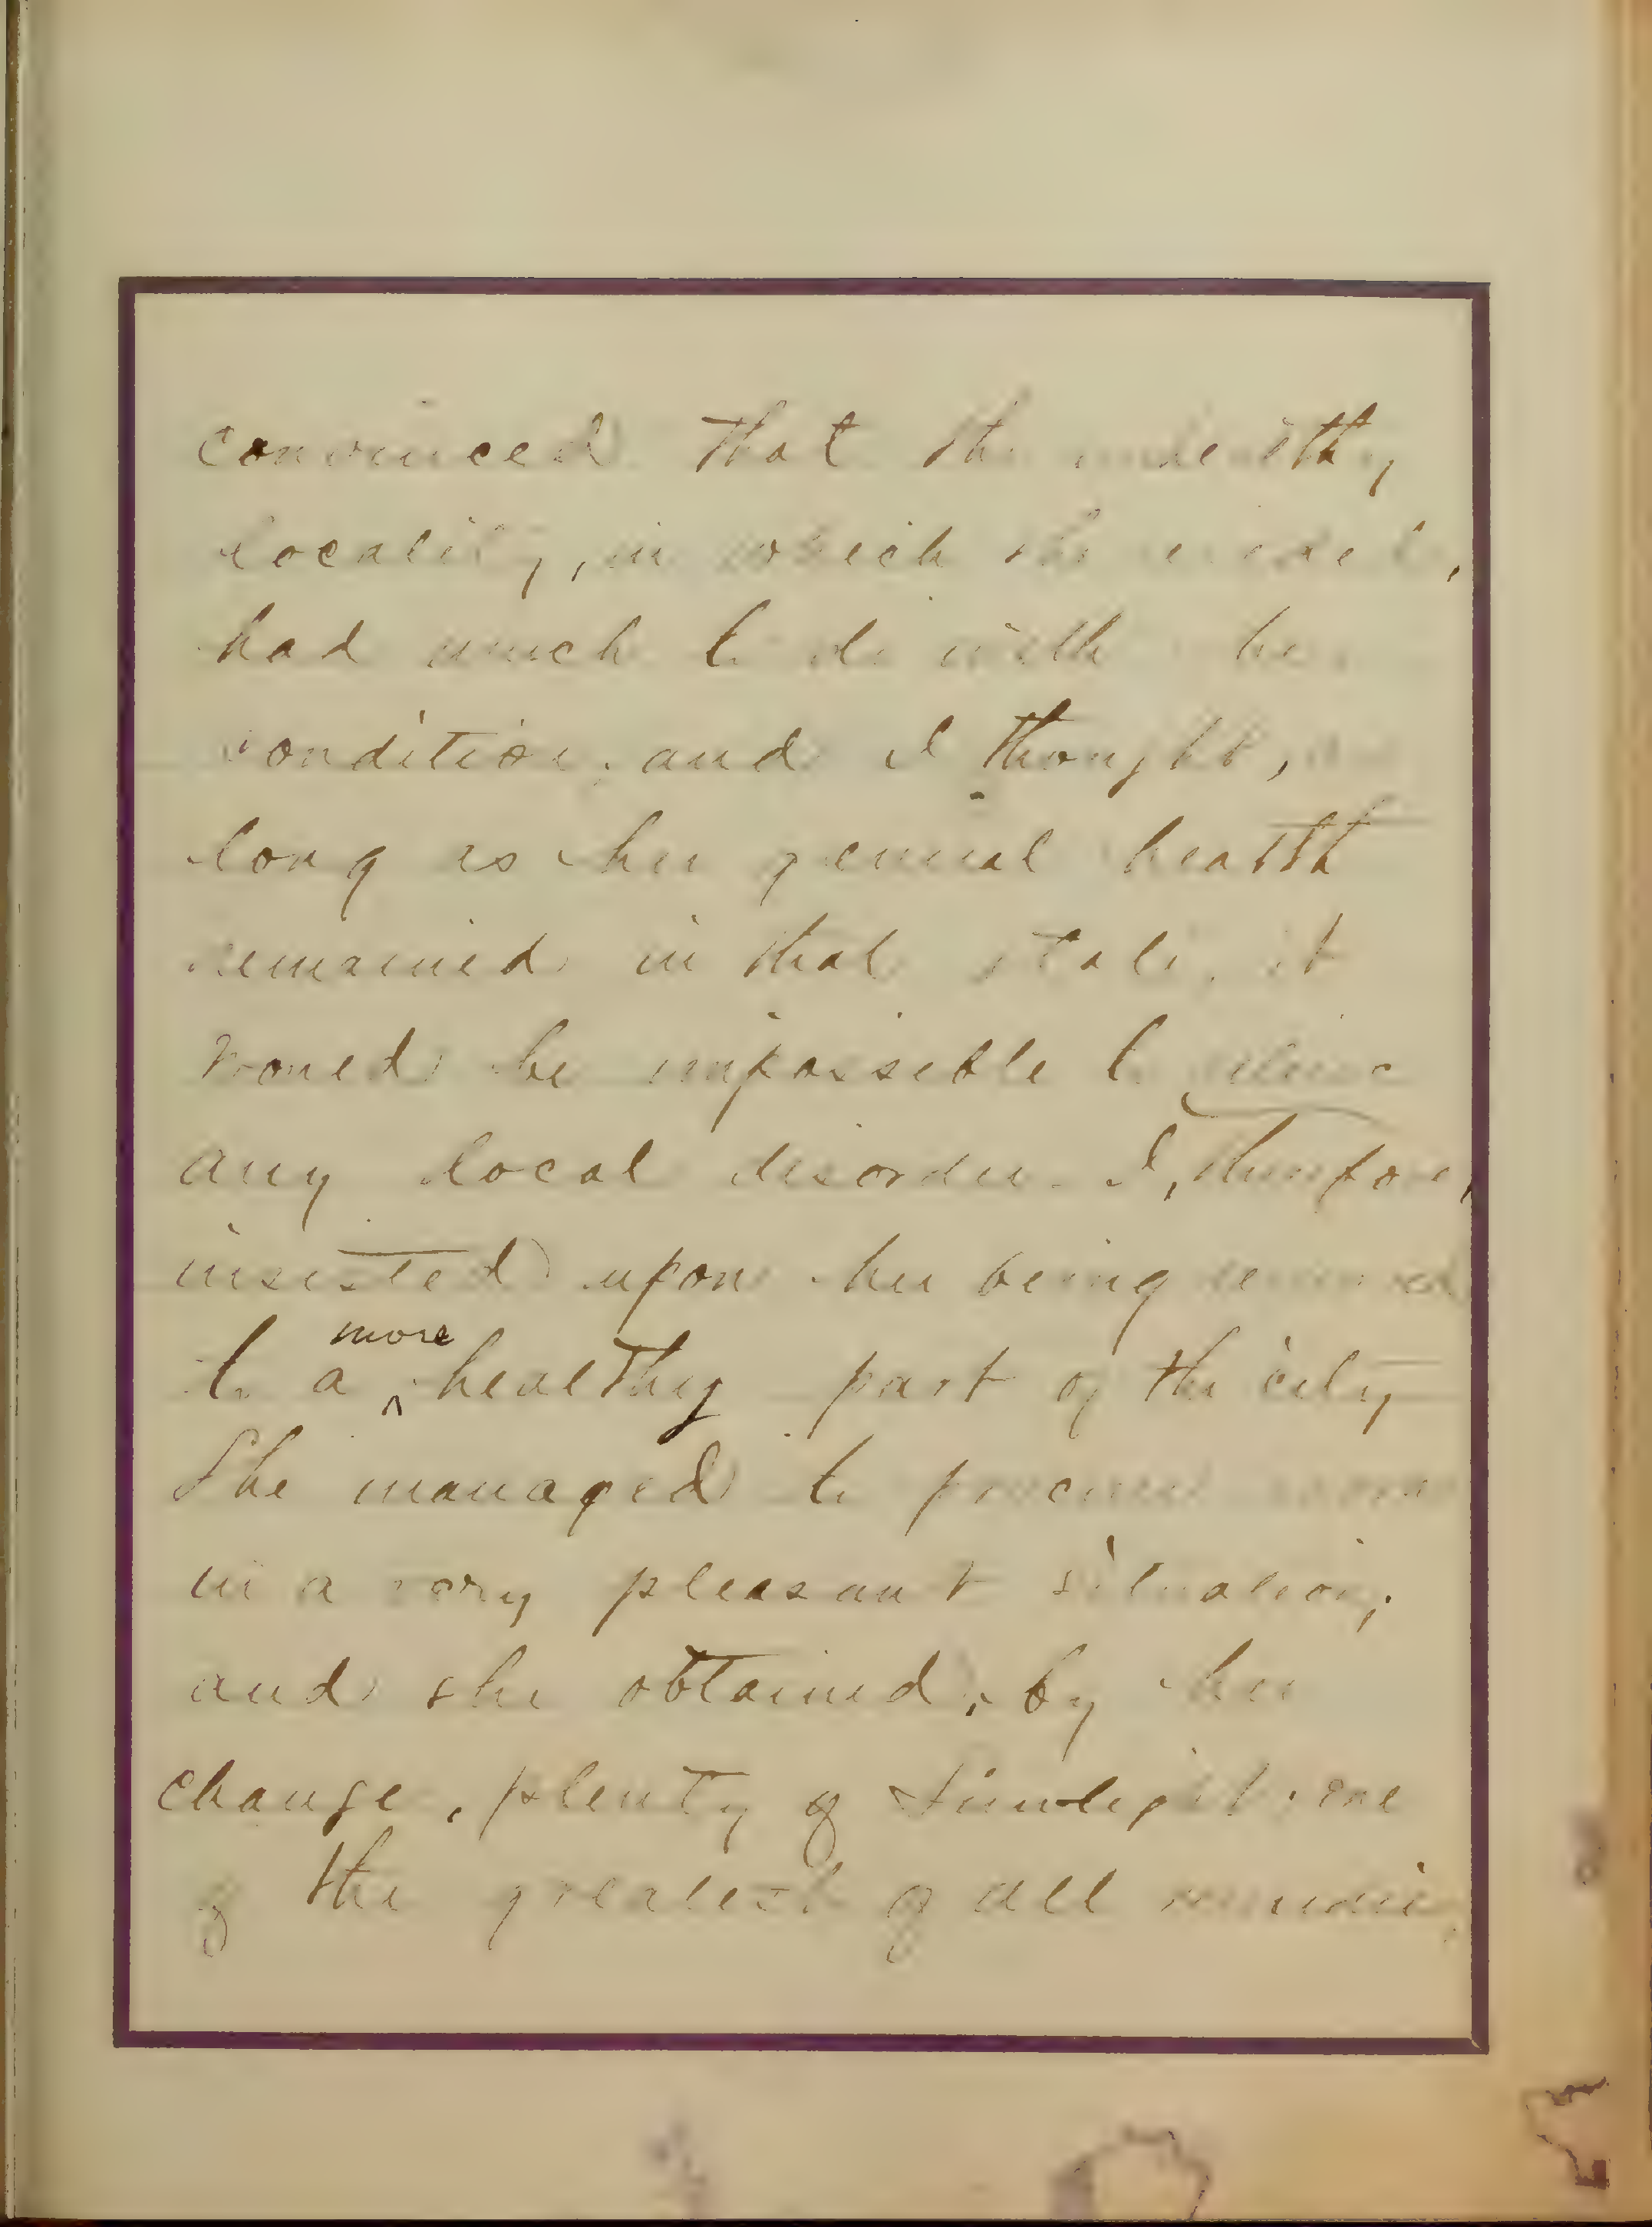 convinced that the unhealthy
locality, in which she resided,
had much to do with her
condition, and I thought, as
long as her general health
remained in that state, it
would be impossible to relieve
any local disorder. I, therefore,
insisted upon her being removed
to a more healthy part of the city
She managed to procure rooms
in a very pleasant situation,
and she obtained, by her
change, plenty of sunlight, one
of the greatest of all